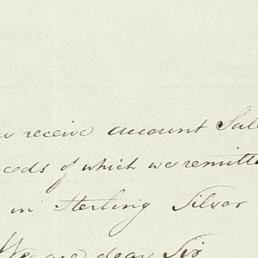 receive account Sal
eeds of which we remitte
in Sterling Silver
We are dear Sir